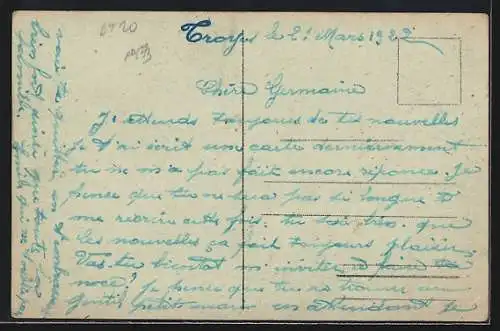 6920
Troyes le 21 Mars 1922
Chère Germaine
J'attends toujours de tes nouvelles
je t'ai écrit une carte dernièrement
tu ne m'a pas fait encore réponse. Je
pense que tu ne sera pas si longue à
me reécrire cette fois. tu sais bien que
les nouvelles ça fait toujours plaisir
Vas-tu bientot m'inviter à faire ta
noce? Je pense que tu as trouvé un
gentil petit mari en attendant je
vais te quitter en t'embrassant
bien fort ainsi que toute ta
famille